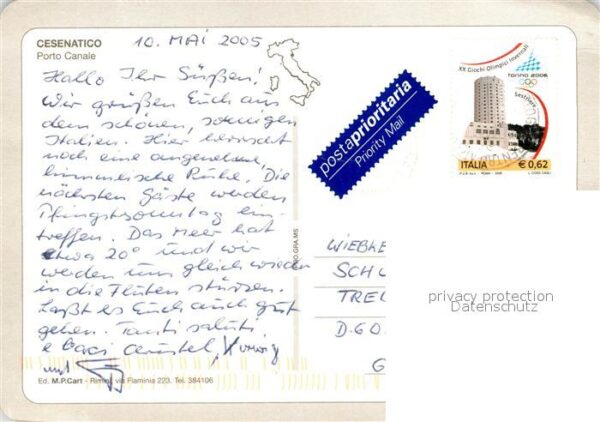 CESENATICO
Porto Canale
10. MAI 2005
Hallo Ihr Süßen!
Wir grüßen Euch aus
dem schönen, sonnigen
Italien. Hier herrscht
noch eine angenehme,
himmlische Ruhe. Die
nächsten Gäste werden
Pfingstsonntag ein-
treffen. Das Meer hat
etwa 20° und wir
werden uns gleich wieder
in die Fluten stürzen.
Laßt es Euch auch gut
gehen. Tanti saluti
e Baci
und
Ed. M.P.Cart - Rimini, via Flaminia 223. Tel. 384106
postaprioritaria
Priority Mail
XX Giochi Olimpici Invernali
TORINO 2006
Sestriere
ITALIA € 0,62
WIEBKE
SCHU
TREL
D-60
G
privacy protection
Datenschutz